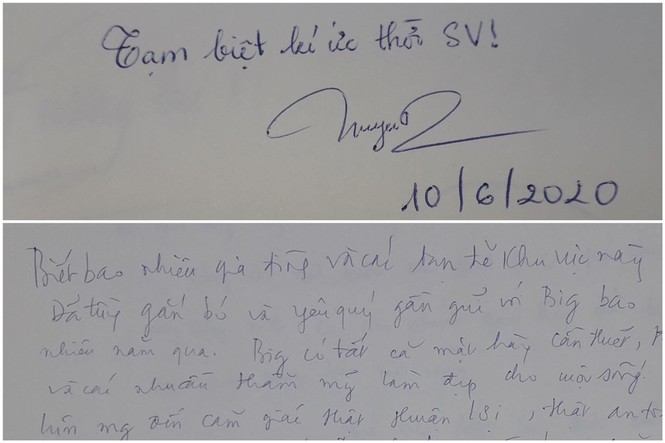 Tạm biệt kí ức thời SV!
10/6/2020
Biết bao nhiêu gia đình và các bạn trẻ khu vực này
Đã từng gắn bó và yêu quý gần gũi với Big bao
nhiêu năm qua. Big có tất cả mặt hàng cần thiết,
và các nhu cầu thẩm mỹ làm đẹp cho cuộc sống
cảm giác thật thuận lợi, thật an